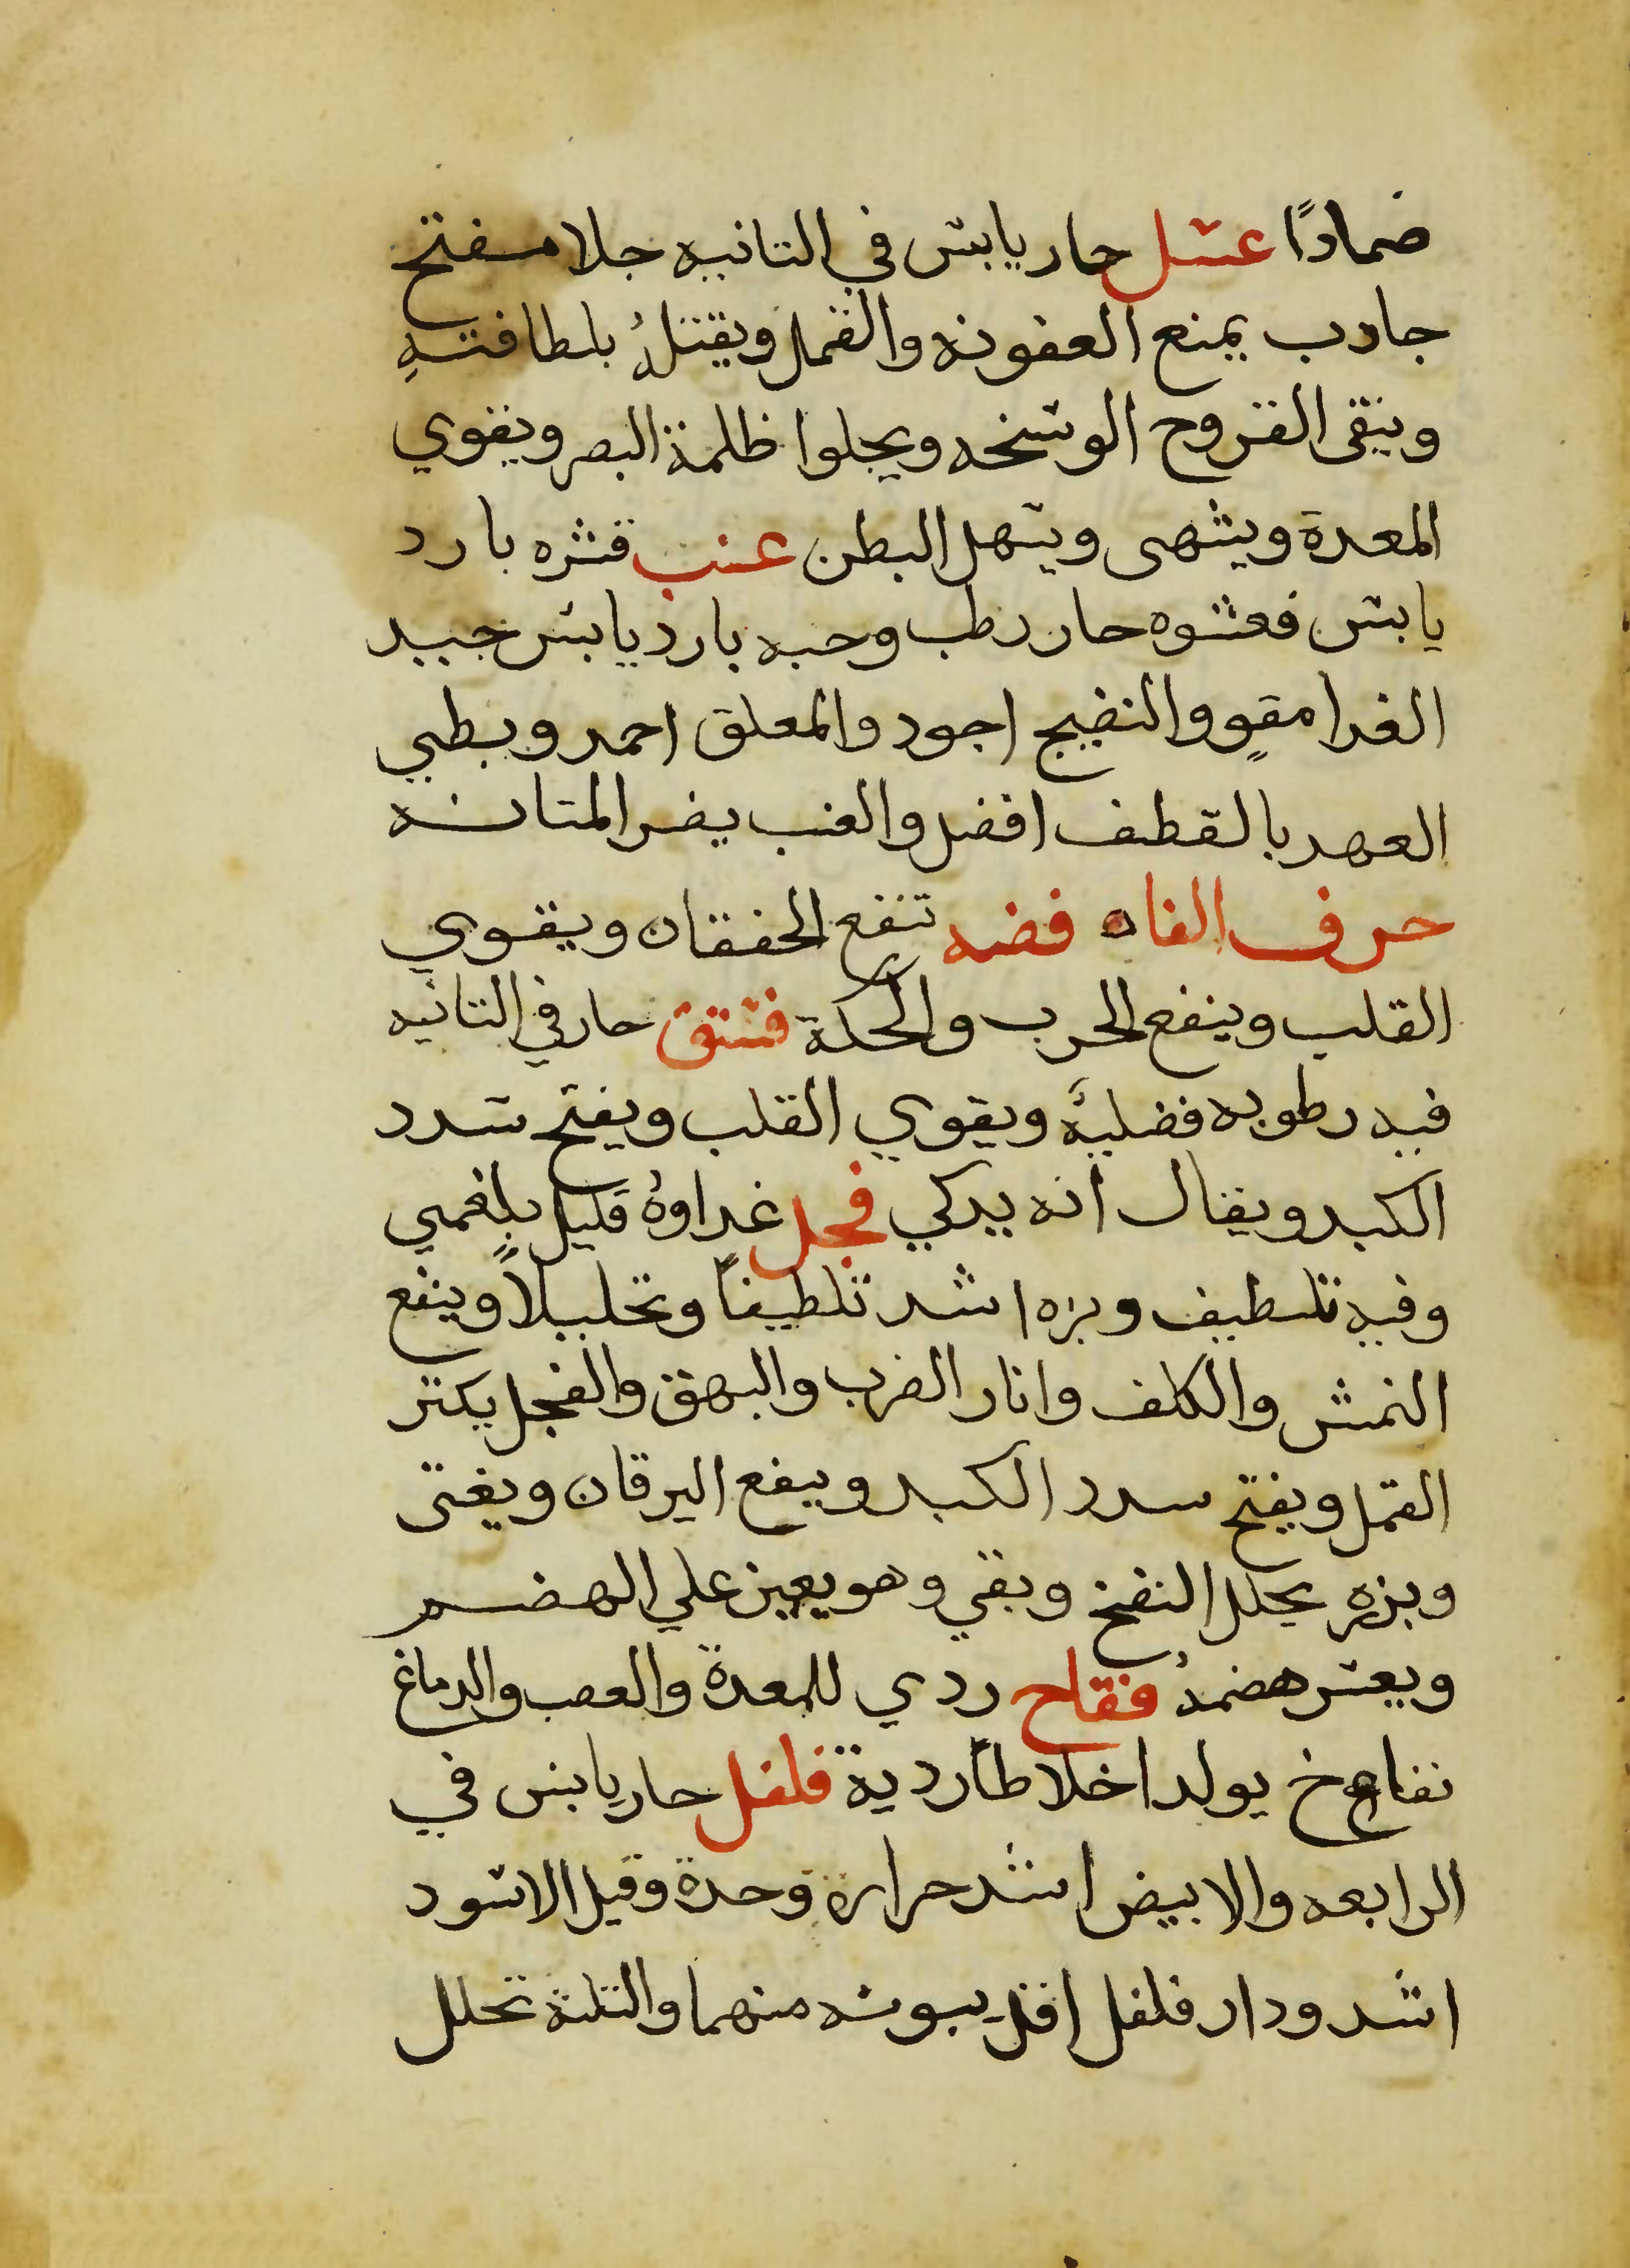 ضمادًا عسل حار يابس في التانيه جلا مفتح
جادب يمنع العفونه والقمل ويقتلُ بلطافته
وينقى القروح الوسخه ويجلوا ظلمة البصر ويقوي
المعدة ويشهى ويسهل البطن عنب قشره بارد
يابس فعشوه حار رطب وحبه بارد يابس جيد
الغدا مقوٍ والنضيج اجود والمعلق احمد وبطي
العهد بالقطف افضل والعنب يضر المتانه
حرف الفاه فضه تنفع الخفقان ويقوي
القلب وينفع الجرب والحكة فستق حار في التانيه
فيه رطوبه فضليةً ويقوي القلب ويفتح سدد
الكبد ويقال انه يدكي فجل غداوهُ قليل بلغمي
وفيه تلطيف وبزره اشد تلطيفاً وتحليلاً وينفع
النمش والكلف واتار الضرب والبهق والفجل يكتر
القمل ويفتح سدد الكبد وينفع اليرقان ويغتى
وبزره يحلل النفخ وبقي وهو يعين علي الهضم
ويعسر هضمهُ فقاح ردي للمعدة والعصب والدماغ
نفاخ يولد اخلاطاً ردية فلفل حار يابس في
الرابعه والابيض اشد حرارة وحدة وقيل الاسود
اشد ودار فلفل اقل يبوسه منهما والتلته تحلل